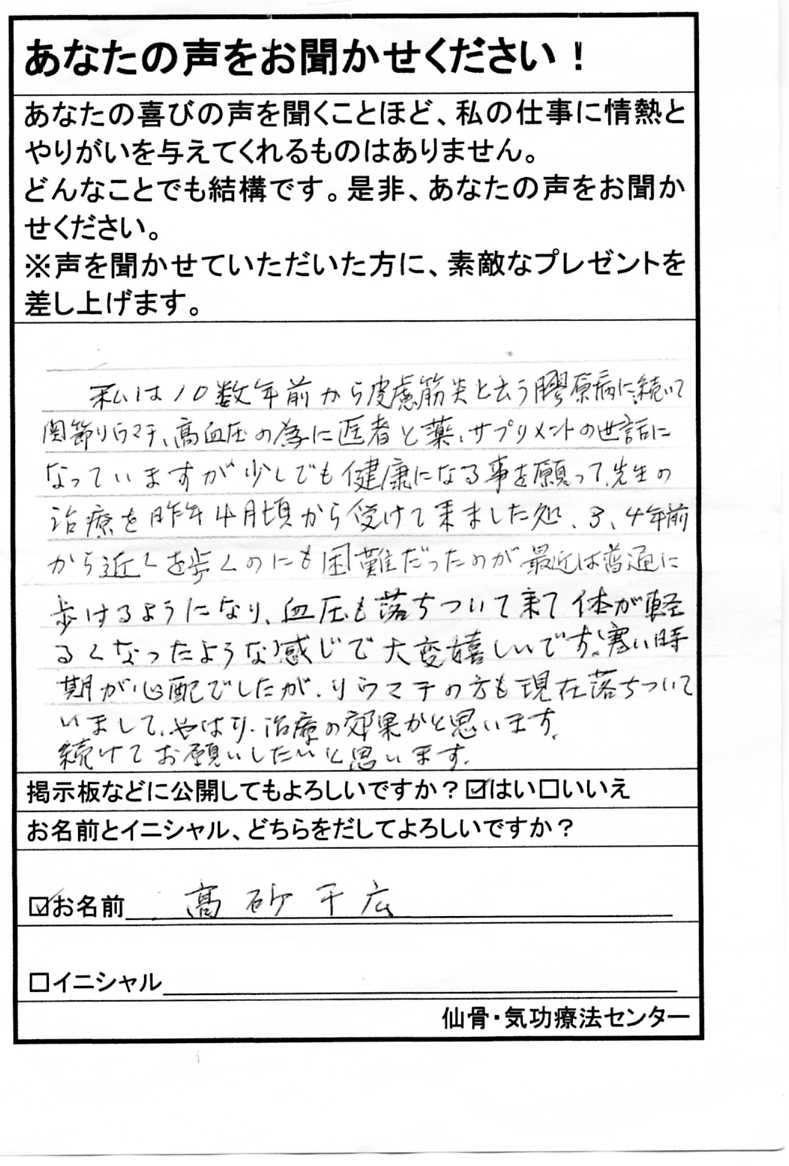 あなたの声をお聞かせください！
あなたの喜びの声を聞くことほど、私の仕事に情熱と
やりがいを与えてくれるものはありません。
どんなことでも結構です。是非、あなたの声をお聞か
せください。
※声を聞かせていただいた方に、素敵なプレゼントを
差し上げます。
私は10数年前から皮膚筋炎と云う膠原病に続いて
関節リウマチ、高血圧の為に医者と薬、サプリメントの世話に
なっていますが少しでも健康になる事を願って、先生の
治療を昨年4月頃から受けて来ました処、3、4年前
から近くを歩くのにも困難だったのが最近は普通に
歩けるようになり、血圧も落ちついて来て体が軽
るくなったような感じで大変嬉しいです。寒い時
期が心配でしたが、リウマチの方も現在落ちついて
いまして、やはり、治療の効果かと思います。
続けてお願いしたいと思います。
掲示板などに公開してもよろしいですか？☑はい□いいえ
お名前とイニシャル、どちらをだしてよろしいですか？
☑お名前 高砂千広
□イニシャル
仙骨・気功療法センター